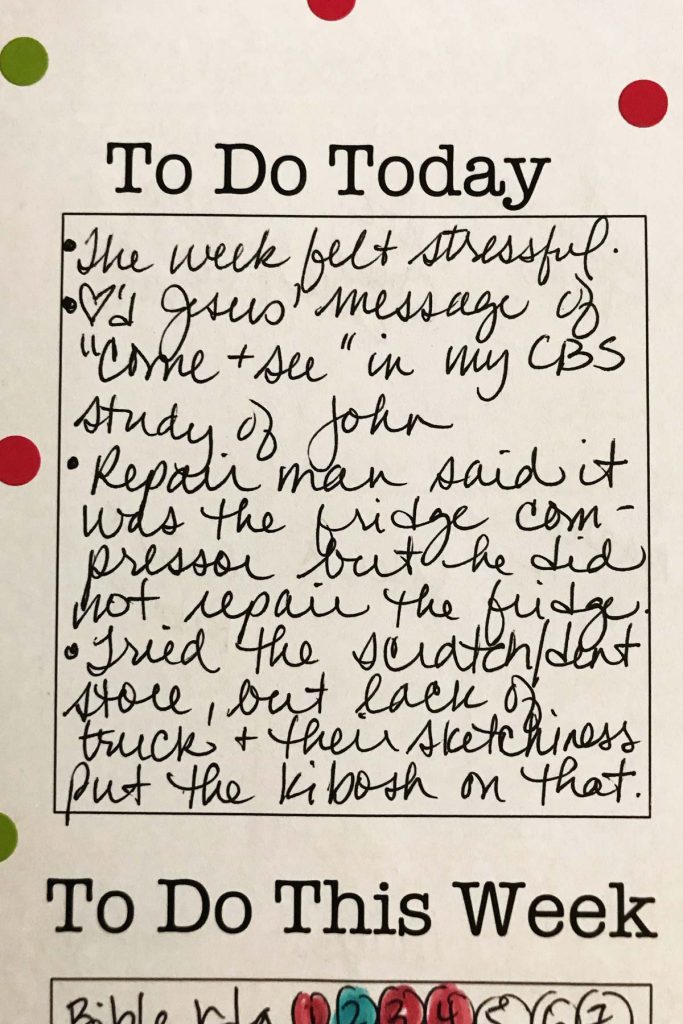 To Do Today
• The week felt stressful.
• ♡'d Jesus' message of
"come + see" in my CBS
study of John
• Repair man said it
was the fridge com-
pressor but he did
not repair the fridge.
• Tried the scratch/dent
store, but lack of
truck + their sketchiness
put the kibosh on that.
To Do This Week
Bible rdg 1 2 3 4 5 6 7